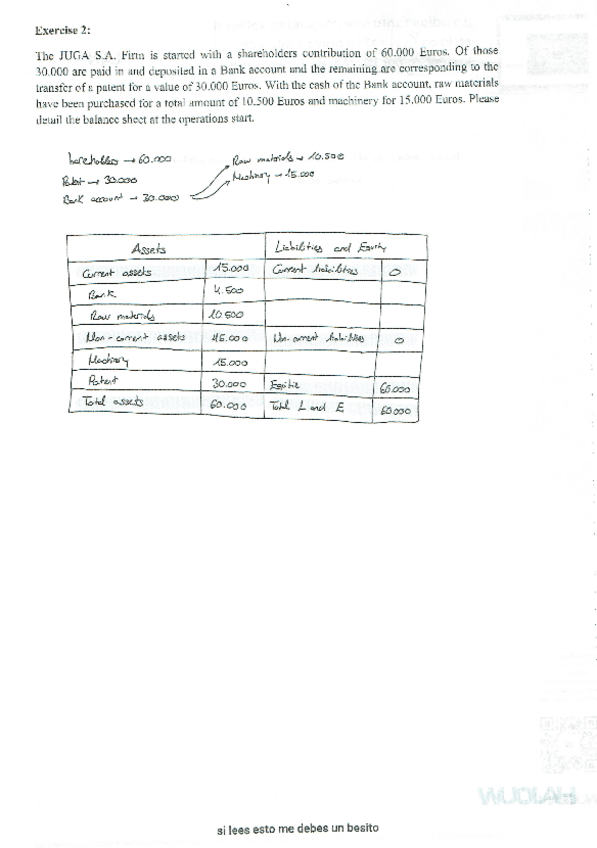 Exercise 2:
The JUGA S.A. Firm is started with a shareholders contribution of 60.000 Euros. Of those
30.000 are paid in and deposited in a Bank account and the remaining are corresponding to the
transfer of a patent for a value of 30.000 Euros. With the cash of the Bank account, raw materials
have been purchased for a total amount of 10.500 Euros and machinery for 15.000 Euros. Please
detail the balance sheet at the operations start.
→ 60.000 Raw materials → 10.500
→ 30.000 Machinery → 15.000
Bank account → 30.000
Assets Liabilities and Equity
Current assets 15.000 Current liabilities 0
Bank 4.500
Raw materials 10.500
Non-current assets 45.000 Non-current liabilities 0
Machinery 15.000
Patent 30.000 60.000
Total assets 60.000 Total L and E 60.000
si lees esto me debes un besito